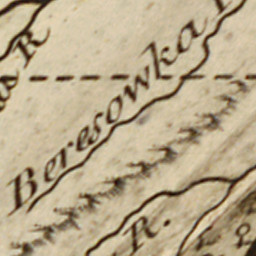 R
Beresowka
R.